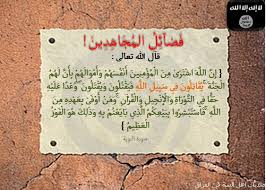 لا إله إلا الله
فَضَائِلُ المُجَاهِدِينَ !
قال الله تعالى :
{ إِنَّ اللَّهَ اشْتَرَىٰ مِنَ الْمُؤْمِنِينَ أَنْفُسَهُمْ وَأَمْوَالَهُمْ بِأَنَّ لَهُمُ
الْجَنَّةَ ۚ يُقَاتِلُونَ فِي سَبِيلِ اللَّهِ فَيَقْتُلُونَ وَيُقْتَلُونَ ۖ وَعْدًا عَلَيْهِ
حَقًّا فِي التَّوْرَاةِ وَالْإِنْجِيلِ وَالْقُرْآنِ ۚ وَمَنْ أَوْفَىٰ بِعَهْدِهِ مِنَ
اللَّهِ ۚ فَاسْتَبْشِرُوا بِبَيْعِكُمُ الَّذِي بَايَعْتُمْ بِهِ ۚ وَذَٰلِكَ هُوَ الْفَوْزُ
الْعَظِيمُ }
سورة التوبة